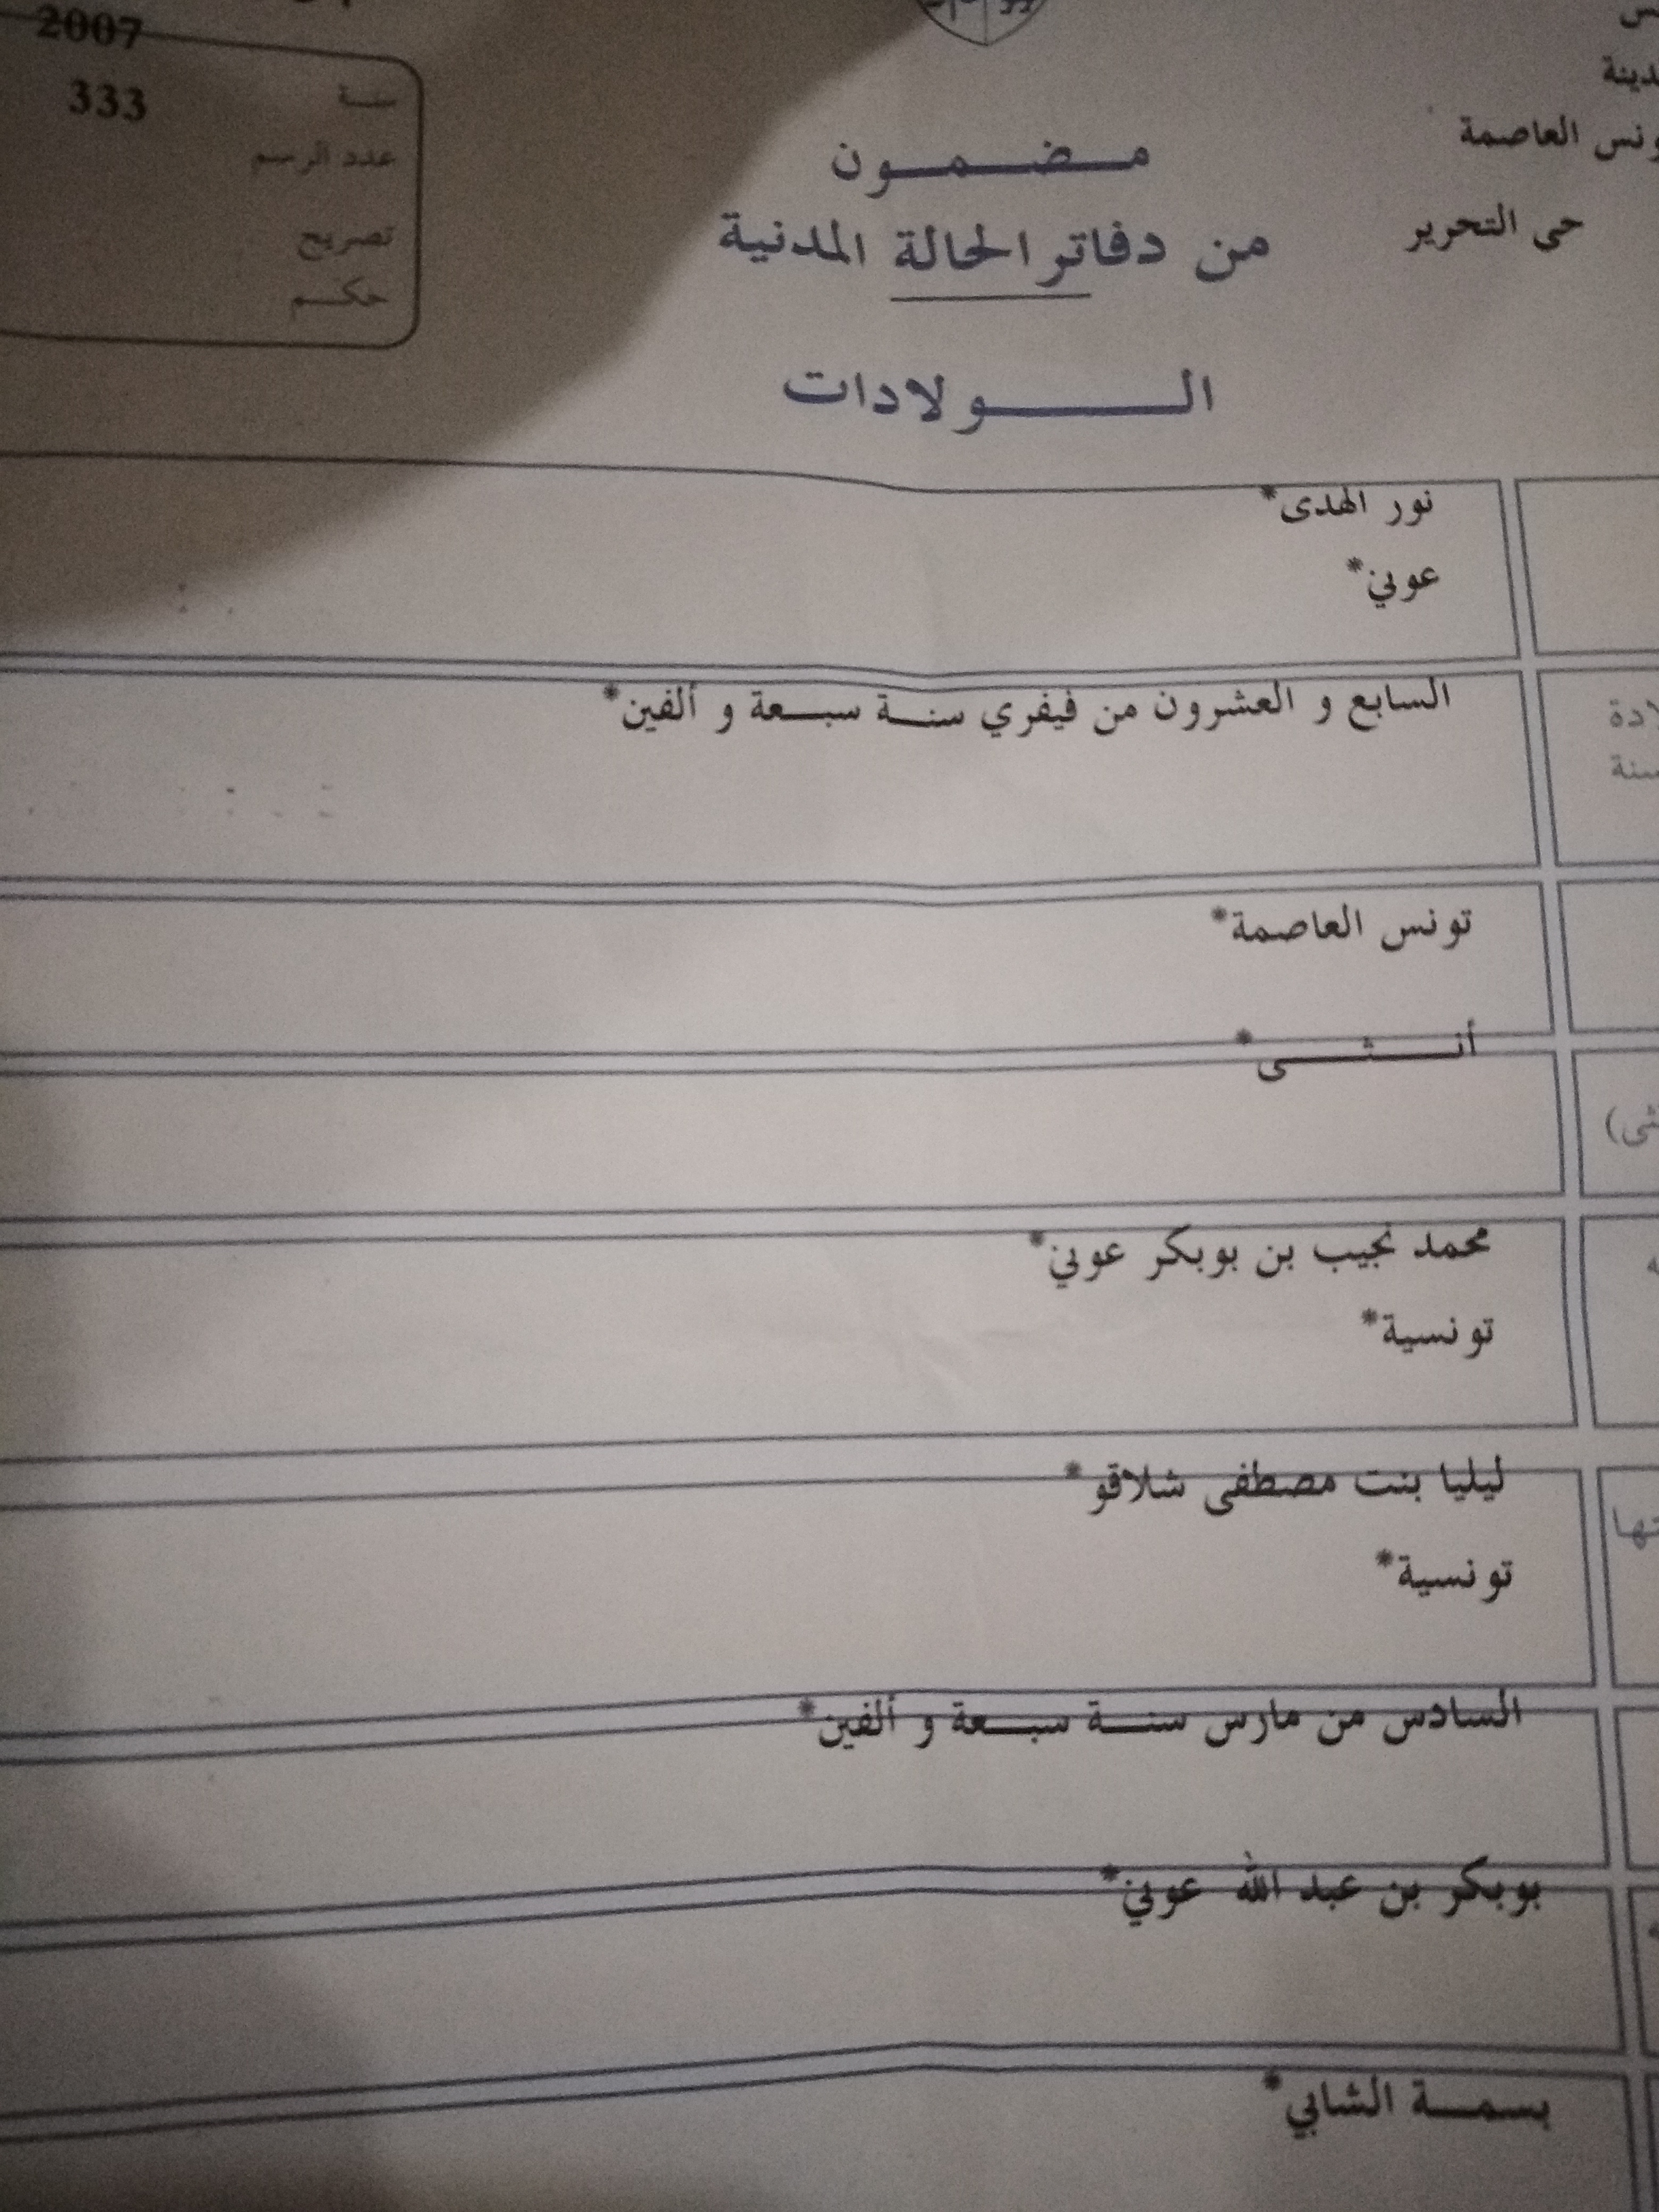 2007
333
سنة
عدد الرسم
تصريح
حكم
تونس العاصمة
حى التحرير
مضمون
من دفاتر الحالة المدنية
الولادات
نور الهدى*
عوني*
السابع و العشرون من فيفري سنة سبعة و ألفين*
تونس العاصمة*
أنثى*
محمد نجيب بن بوبكر عوني*
تونسية*
ليليا بنت مصطفى شلاقو*
تونسية*
السادس من مارس سنة سبعة و ألفين*
بوبكر بن عبد الله عوني*
بسمة الشابي*